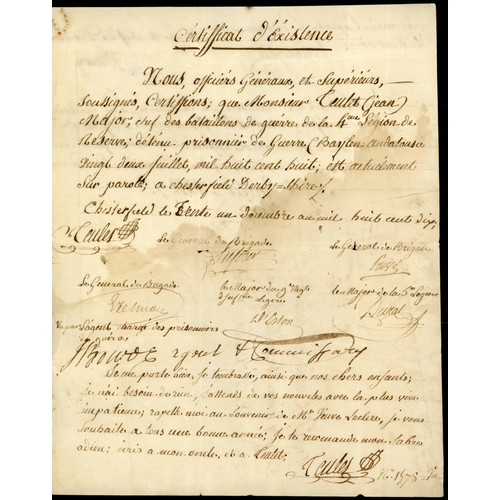 Certifficat d'Existence
Nous, officiers Généraux, et Supérieurs,
Soussignés, Certiffions; que Monsieur Teulet (jean)
Major; chef des bataillons de guerre de la 4me Légion de
Réserve, détenu prisonnier de Guerre (Baylen andalousie
Vingt deux juillet, mil huit cent huit; est actuelement
Sur parole; a chesterfield Derby=Shire).
Chesterfield le Trente un décembre an mil huit cent dix.
Teulet
Le Général de Brigade
Le General de Brigade
Le General de Brigade
Le Major du
Le Major de la Légion
Exelman
3
Vu par l'agent chargé des prisonniers
de guerre
agent & Commissary
Je me porte bien, je t'embrasse, ainsi que nos chers enfants;
je n'ai besoin de rien, j'attends de vos nouvelles avec la plus vive
impatience; rapelle moi au Souvenir de Mde Veuve Leclere, je vous
Souhaite a tous une bonne année; je te recomande mon Sabre
adieu; écris a mon oncle, et a Teulet.
Teulet
No. 1578